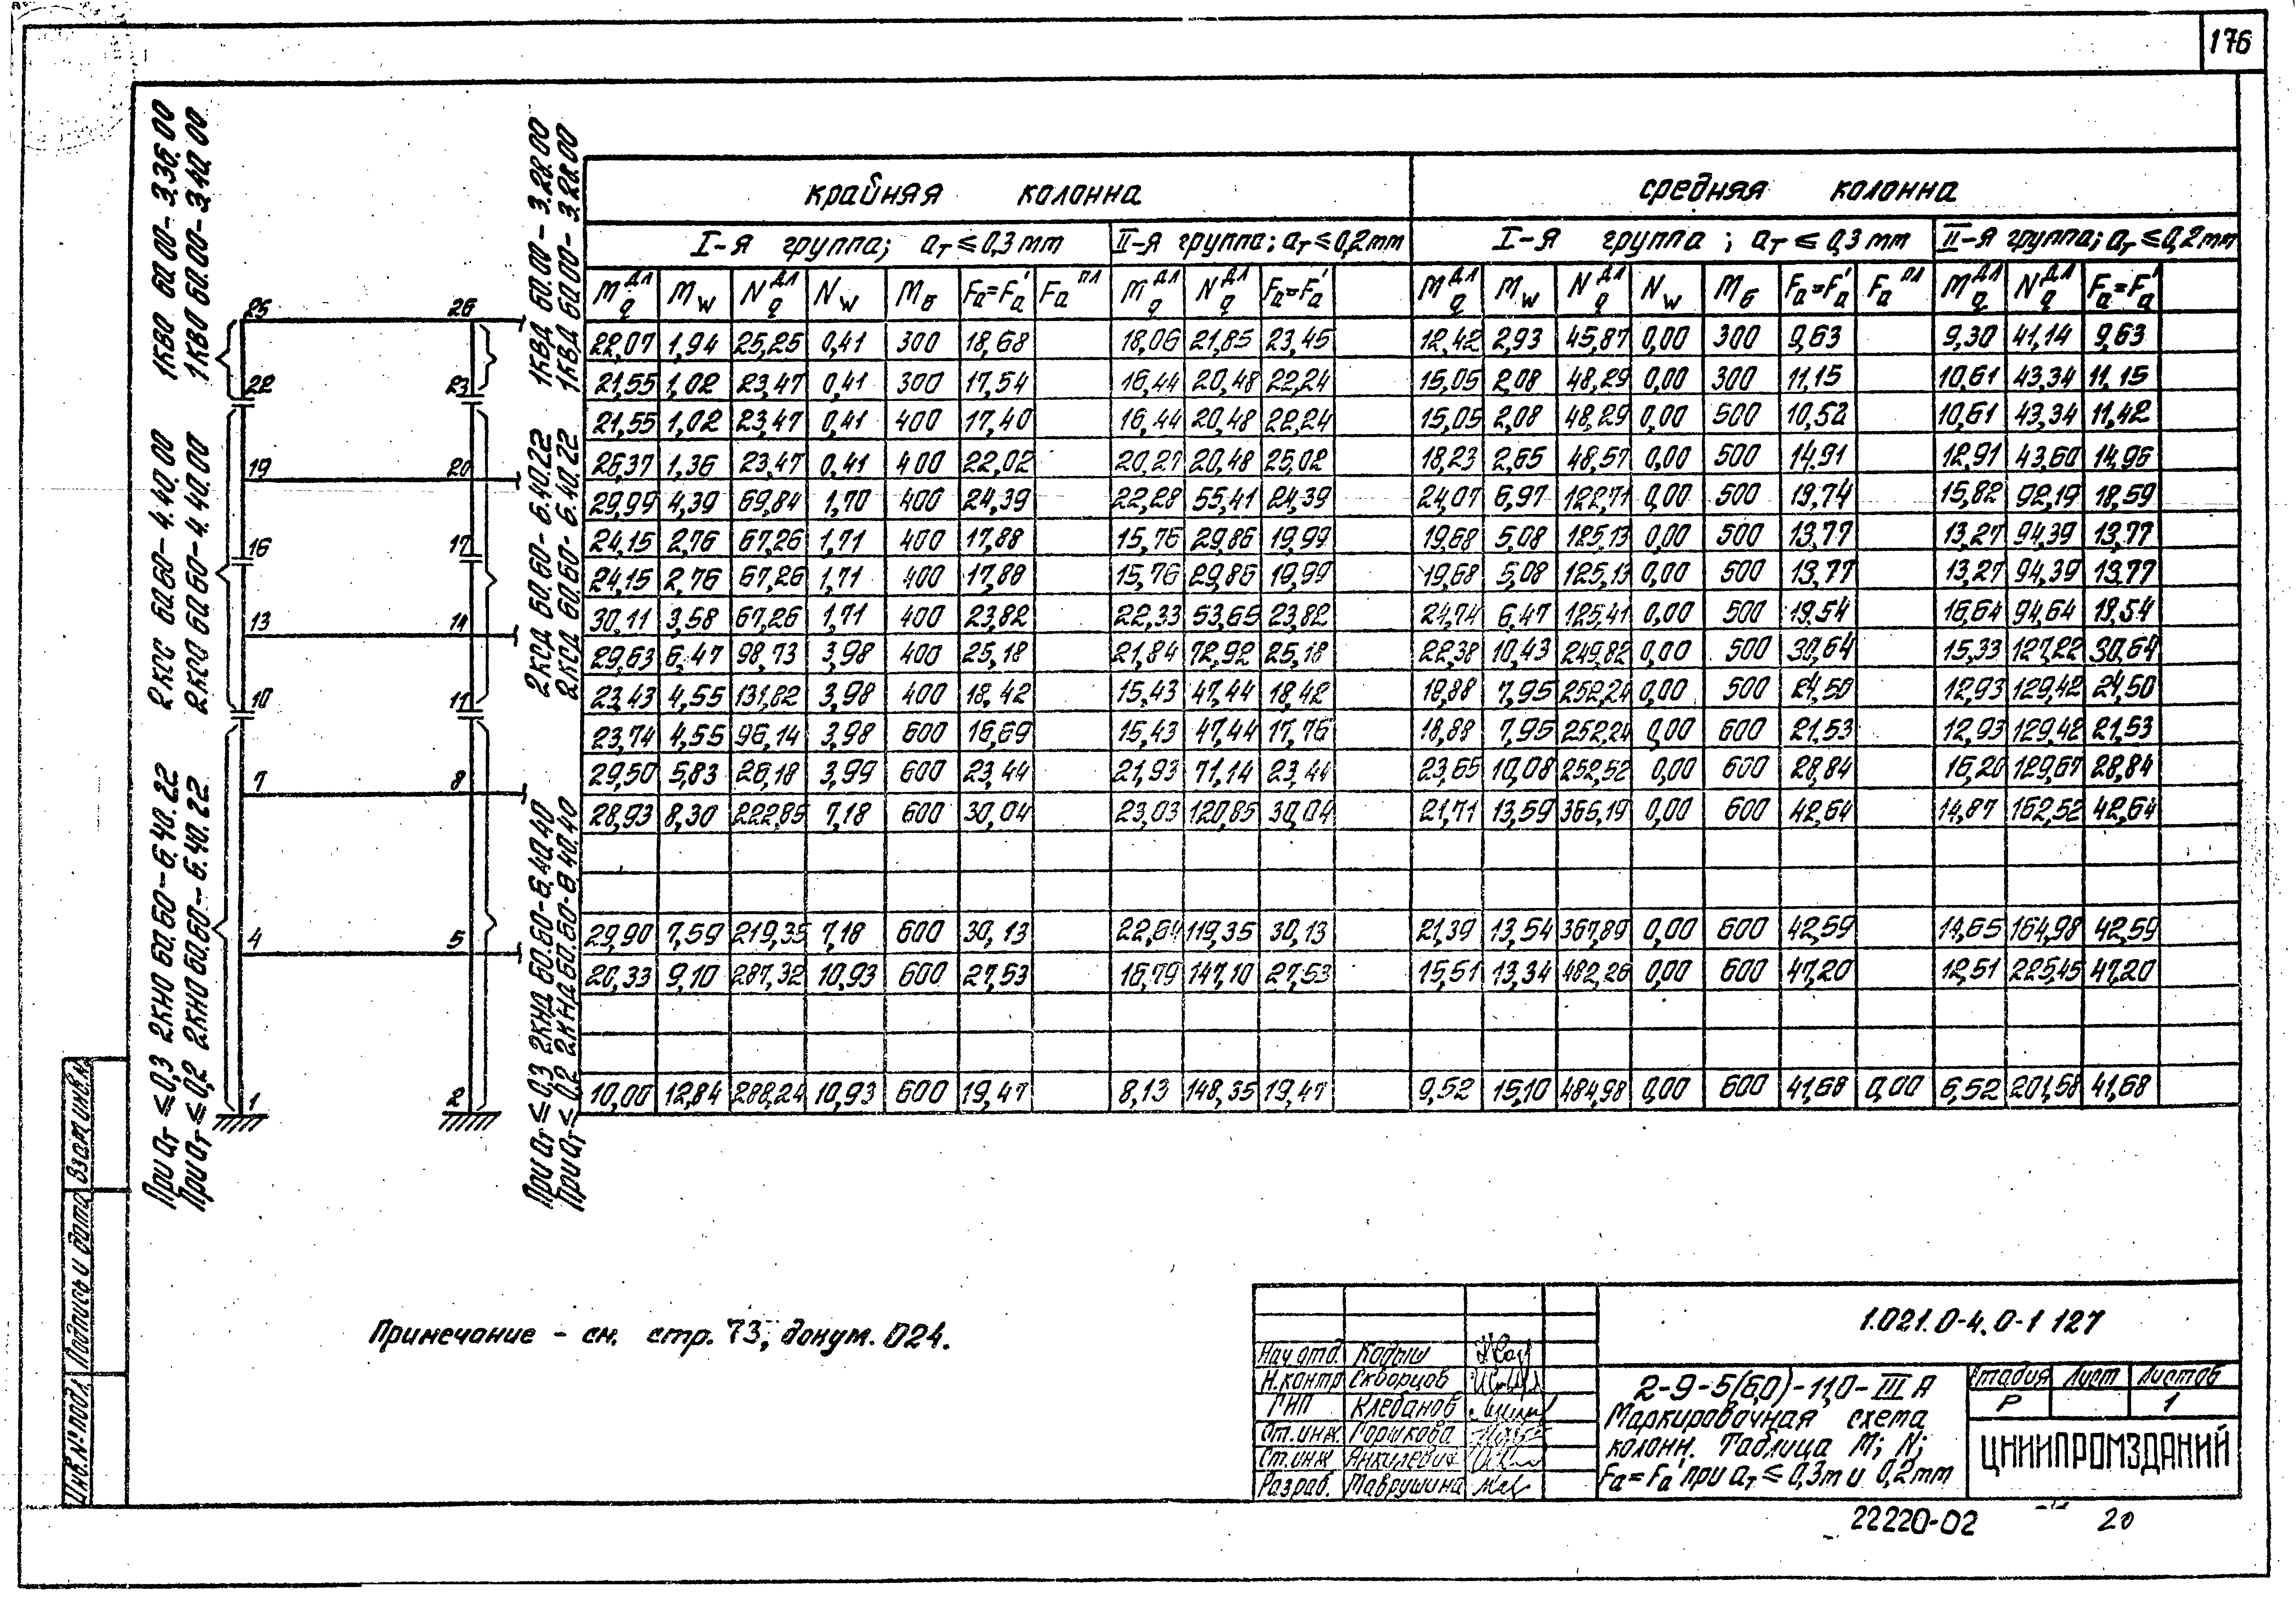 176
1КВО 60.00-3.36.00
1КВО 60.00-3.40.00
2КСО 60.60-4.40.00
2КСО 60.60-4.40.00
При aт ≤ 0,3 2КНО 60.60-6.40.22
При aт ≤ 0,2 2КНО 60.60-6.40.22
1КВД 60.00-3.28.00
1КВД 60.00-3.28.00
2КСД 60.60-6.40.22
2КСД 60.60-6.40.22
При aт ≤ 0,3 2КНД 60.60-8.40.40
При aт ≤ 0,2 2КНД 60.60-8.40.40
25 26
22 23
19 20
16 17
13 14
10 11
7 8
4 5
1 2
крайняя колонна средняя колонна
I-я группа; aт ≤ 0,3 mm II-я группа; aт ≤ 0,2 mm I-я группа; aт ≤ 0,3 mm II-я группа; aт ≤ 0,2 mm
Mqдл Mw Nqдл Nw Mб Fa=Fa' Faпл Mqдл Nqдл Fa=Fa' Mqдл Mw Nqдл Nw Mб Fa=Fa' Faпл Mqдл Nqдл Fa=Fa'
22,07 1,94 25,25 0,41 300 18,68 18,06 21,85 23,45 12,42 2,93 45,87 0,00 300 9,63 9,30 41,14 9,63
21,55 1,02 23,47 0,41 300 17,54 16,44 20,48 22,24 15,05 2,08 48,29 0,00 300 11,15 10,61 43,34 11,15
21,55 1,02 23,47 0,41 400 17,40 16,44 20,48 22,24 15,05 2,08 48,29 0,00 500 10,52 10,61 43,34 11,42
26,37 1,36 23,47 0,41 400 22,02 20,27 20,48 25,02 18,23 2,65 48,57 0,00 500 14,91 12,91 43,60 14,96
29,99 4,39 69,84 1,70 400 24,39 22,28 55,41 24,39 24,07 6,97 122,71 0,00 500 19,74 15,82 92,19 18,59
24,15 2,76 67,26 1,71 400 17,88 15,76 29,86 19,99 19,68 5,08 125,13 0,00 500 13,77 13,27 94,39 13,77
24,15 2,76 67,26 1,71 400 17,88 15,76 29,86 19,99 19,68 5,08 125,13 0,00 500 13,77 13,27 94,39 13,77
30,11 3,58 67,26 1,71 400 23,82 22,33 53,65 23,82 24,74 6,47 125,41 0,00 500 19,54 16,64 94,64 19,54
29,63 6,47 98,73 3,98 400 25,18 21,84 72,92 25,18 22,38 10,43 249,82 0,00 500 30,64 15,33 127,22 30,64
23,43 4,55 131,82 3,98 400 18,42 15,43 47,44 18,42 18,88 7,95 252,24 0,00 500 24,50 12,93 129,42 24,50
23,74 4,55 96,14 3,98 600 16,69 15,43 47,44 17,76 18,88 7,95 252,24 0,00 600 21,53 12,93 129,42 21,53
29,50 5,83 26,18 3,99 600 23,44 21,93 71,14 23,44 23,65 10,08 252,52 0,00 600 28,84 16,20 129,67 28,84
28,93 8,30 222,85 7,18 600 30,04 23,03 120,85 30,04 21,71 13,59 365,19 0,00 600 42,64 14,87 162,52 42,64
29,90 7,59 219,35 7,18 600 30,13 22,64 119,35 30,13 21,39 13,54 367,89 0,00 600 42,59 14,65 164,98 42,59
20,33 9,10 287,32 10,93 600 27,53 16,79 147,10 27,53 15,51 13,34 482,26 0,00 600 47,20 12,51 225,45 47,20
10,00 12,84 288,24 10,93 600 19,47 8,13 148,35 19,47 9,52 15,10 484,98 0,00 600 41,68 0,00 6,52 201,58 41,68
Примечание - см. стр. 73, докум. 024.
Взам. инв. №
Подпись и дата
Инв. № подл.
Нач. отд. Кодыш
Н. контр. Скворцов
ГИП Клебанов
Ст. инж. Горшкова
Ст. инж Янкилевич
Разраб. Маврушина
1.021.0-4.0-1 127
2-9-5(6,0)-11,0-III А
Маркировочная схема
колонн. Таблица M; N;
Fa=Fa' при aт ≤ 0,3 m и 0,2 mm
Стадия Лист Листов
Р 1
ЦНИИПРОМЗДАНИЙ
22220-02 20